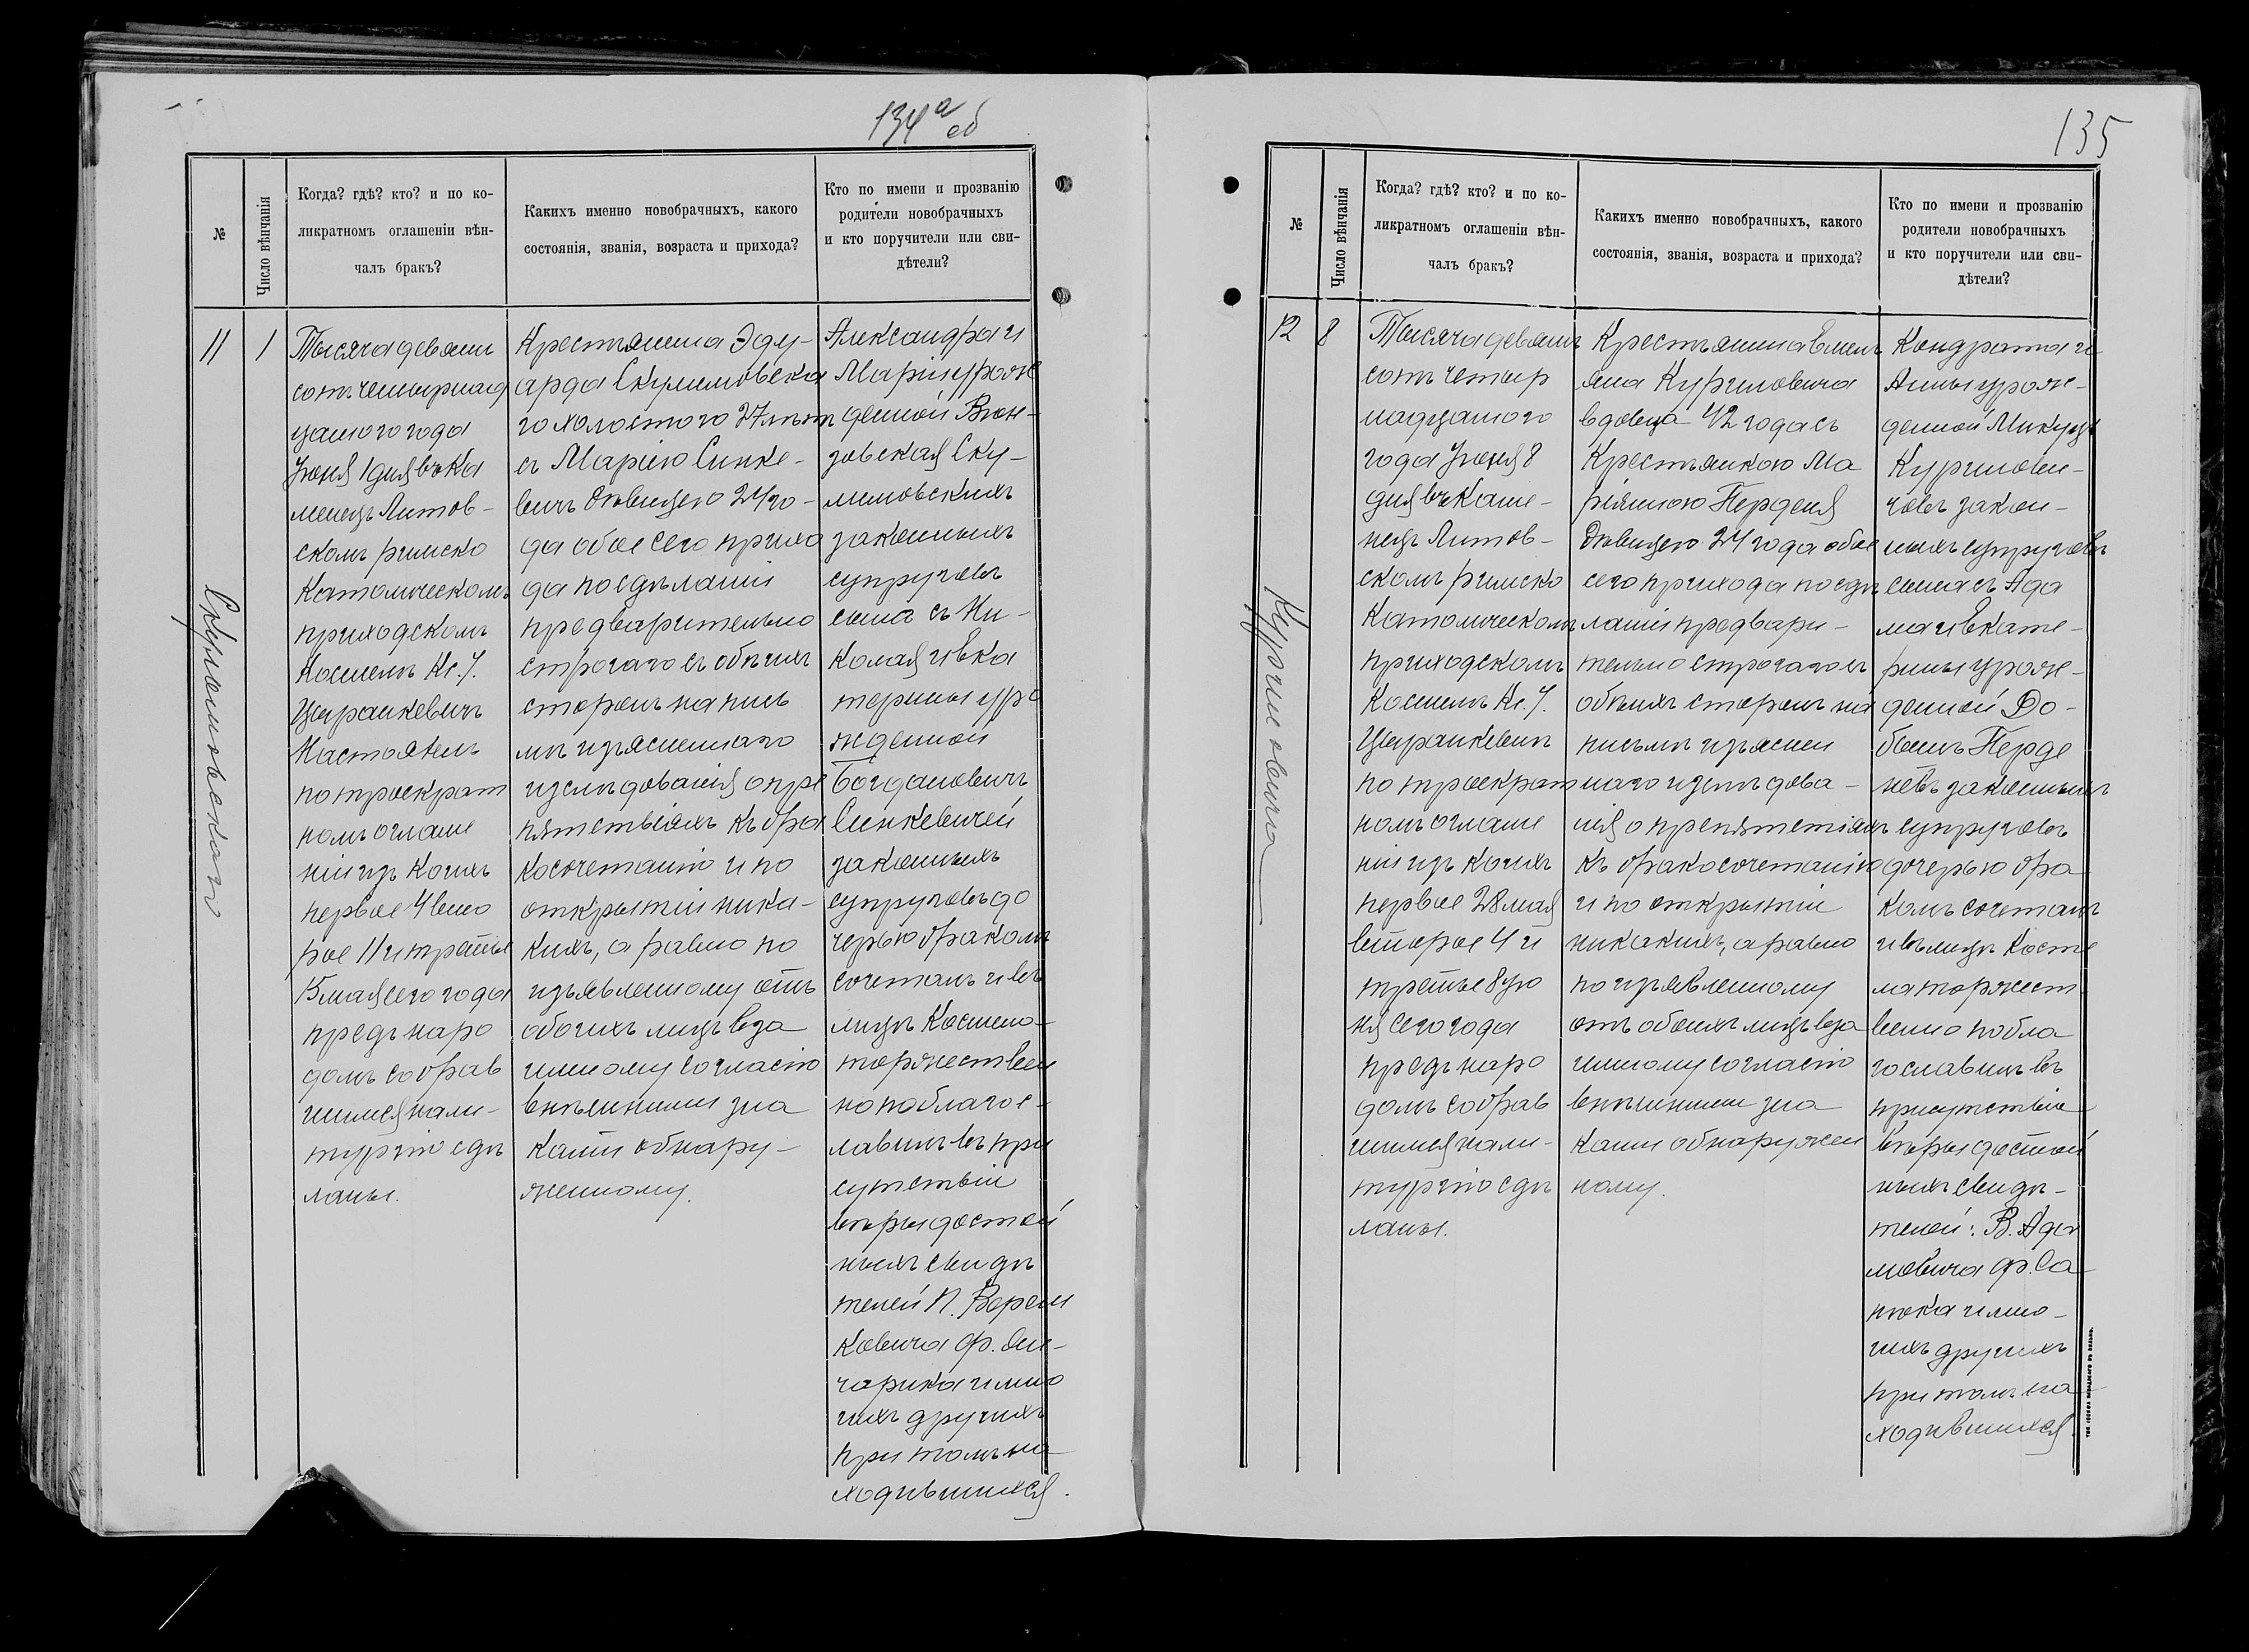 134 а об
№
Число вѣнчанія
Когда? гдѣ? кто? и по ко-
ликратномъ оглашеніи вѣн-
чалъ бракъ?
Какихъ именно новобрачныхъ, какого
состоянія, званія, возраста и прихода?
Кто по имени и прозванію
родители новобрачныхъ
и кто поручители или сви-
дѣтели?
11
1
Скулимовскаго
Тысяча девять
сотъ четырнад
цатого года
Іюня 1 дня въ Ка
менецъ Литов-
скомъ римско
Католическомъ
приходскомъ
Костелѣ Кс. І.
Цыранкевичъ
Настоятель
по троекрат
номъ оглаше
ніи изъ коихъ
первое 4 вто
рое 11 и третье
15 мая сего года
предъ наро
домъ собрав
шимся на ли-
тургію сдѣ
ланы.
Крестьянина Эду-
арда Скулимовска
го холостого 27 лѣтъ
съ Маріею Синке-
вичъ дѣвицею 24 го-
да обое сего прихо
да по сдѣланіи
предварительно
строгаго съ обѣихъ
сторонъ на пись
мѣ изъясненаго
изслѣдованія о пре
пятствіяхъ къ бра
косочетанію и по
открытіи ника-
кихъ, а равно по
изъявленному отъ
обоихъ лицъ вза
имному согласію
внѣшними зна
ками обнару-
женному.
Александра и
Маріи урож
денной Вон-
зовская Ску-
лимовскихъ
законныхъ
супруговъ
сына съ Ни-
колая и Ека
терины уро
жденной
Богдановичъ
Синкевичей
законныхъ
супруговъ до
черью бракомъ
сочеталъ и въ
лицѣ Костела
торжествен
но поблагос-
лавилъ въ при
сутствіи
вѣры достой
ныхъ свидѣ
телей П. Верем
ковича Ф. Он-
чарика и мно
гихъ другихъ
при томъ на
ходившихся.
135
№
Число вѣнчанія
Когда? гдѣ? кто? и по ко-
ликратномъ оглашеніи вѣн-
чалъ бракъ?
Какихъ именно новобрачныхъ, какого
состоянія, званія, возраста и прихода?
Кто по имени и прозванію
родители новобрачныхъ
и кто поручители или сви-
дѣтели?
12
8
Куриловича
Тысяча девять
сотъ четыр
надцатого
года Іюня 8
дня въ Каме-
нецъ Литов-
скомъ римско
Католическомъ
приходскомъ
Костелѣ Кс. І.
Цыранкевичъ
по троекрат
номъ оглаше
ніи изъ коихъ
первое 28 мая
второе 4 и
третье 8 ію
ня сего года
предъ наро
домъ собрав
шимся на ли-
тургію сдѣ
ланы.
Крестьянина Емель
яна Куриловича
вдовца 42 года съ
Крестьянкою Ма
ріянноюПерденя
дѣвицею 24 года обое
сего прихода по сдѣ
ланіи предвари-
тельно строгаго съ
обѣихъ сторонъ на
письмѣ изъяснен
наго изслѣдова-
нія о препятствіяхъ
къ бракосочетанію
и по открытіи
никакихъ, а равно
по изъявленному
отъ обоихъ лицъ вза
имному согласію
внѣшними зна
ками обнаружен
ному.
Кондрата и
Анны урож-
денной Микуцъ
Курилови-
човъ закон-
ныхъ супруговъ
сына съ Ада
ма и Екате-
рины урож-
денной До-
бышъ Перде
нёвъ законныхъ
супруговъ
дочерью бра
комъ сочеталъ
и въ лицѣ Косте
ла торжест
венно побла
гославилъ въ
присутствіе
вѣры достой
ныхъ свидѣ-
телей: В. Ада
мовича Ф. Са
пѣка и мно-
гихъ другихъ
при томъ на
ходившихся.